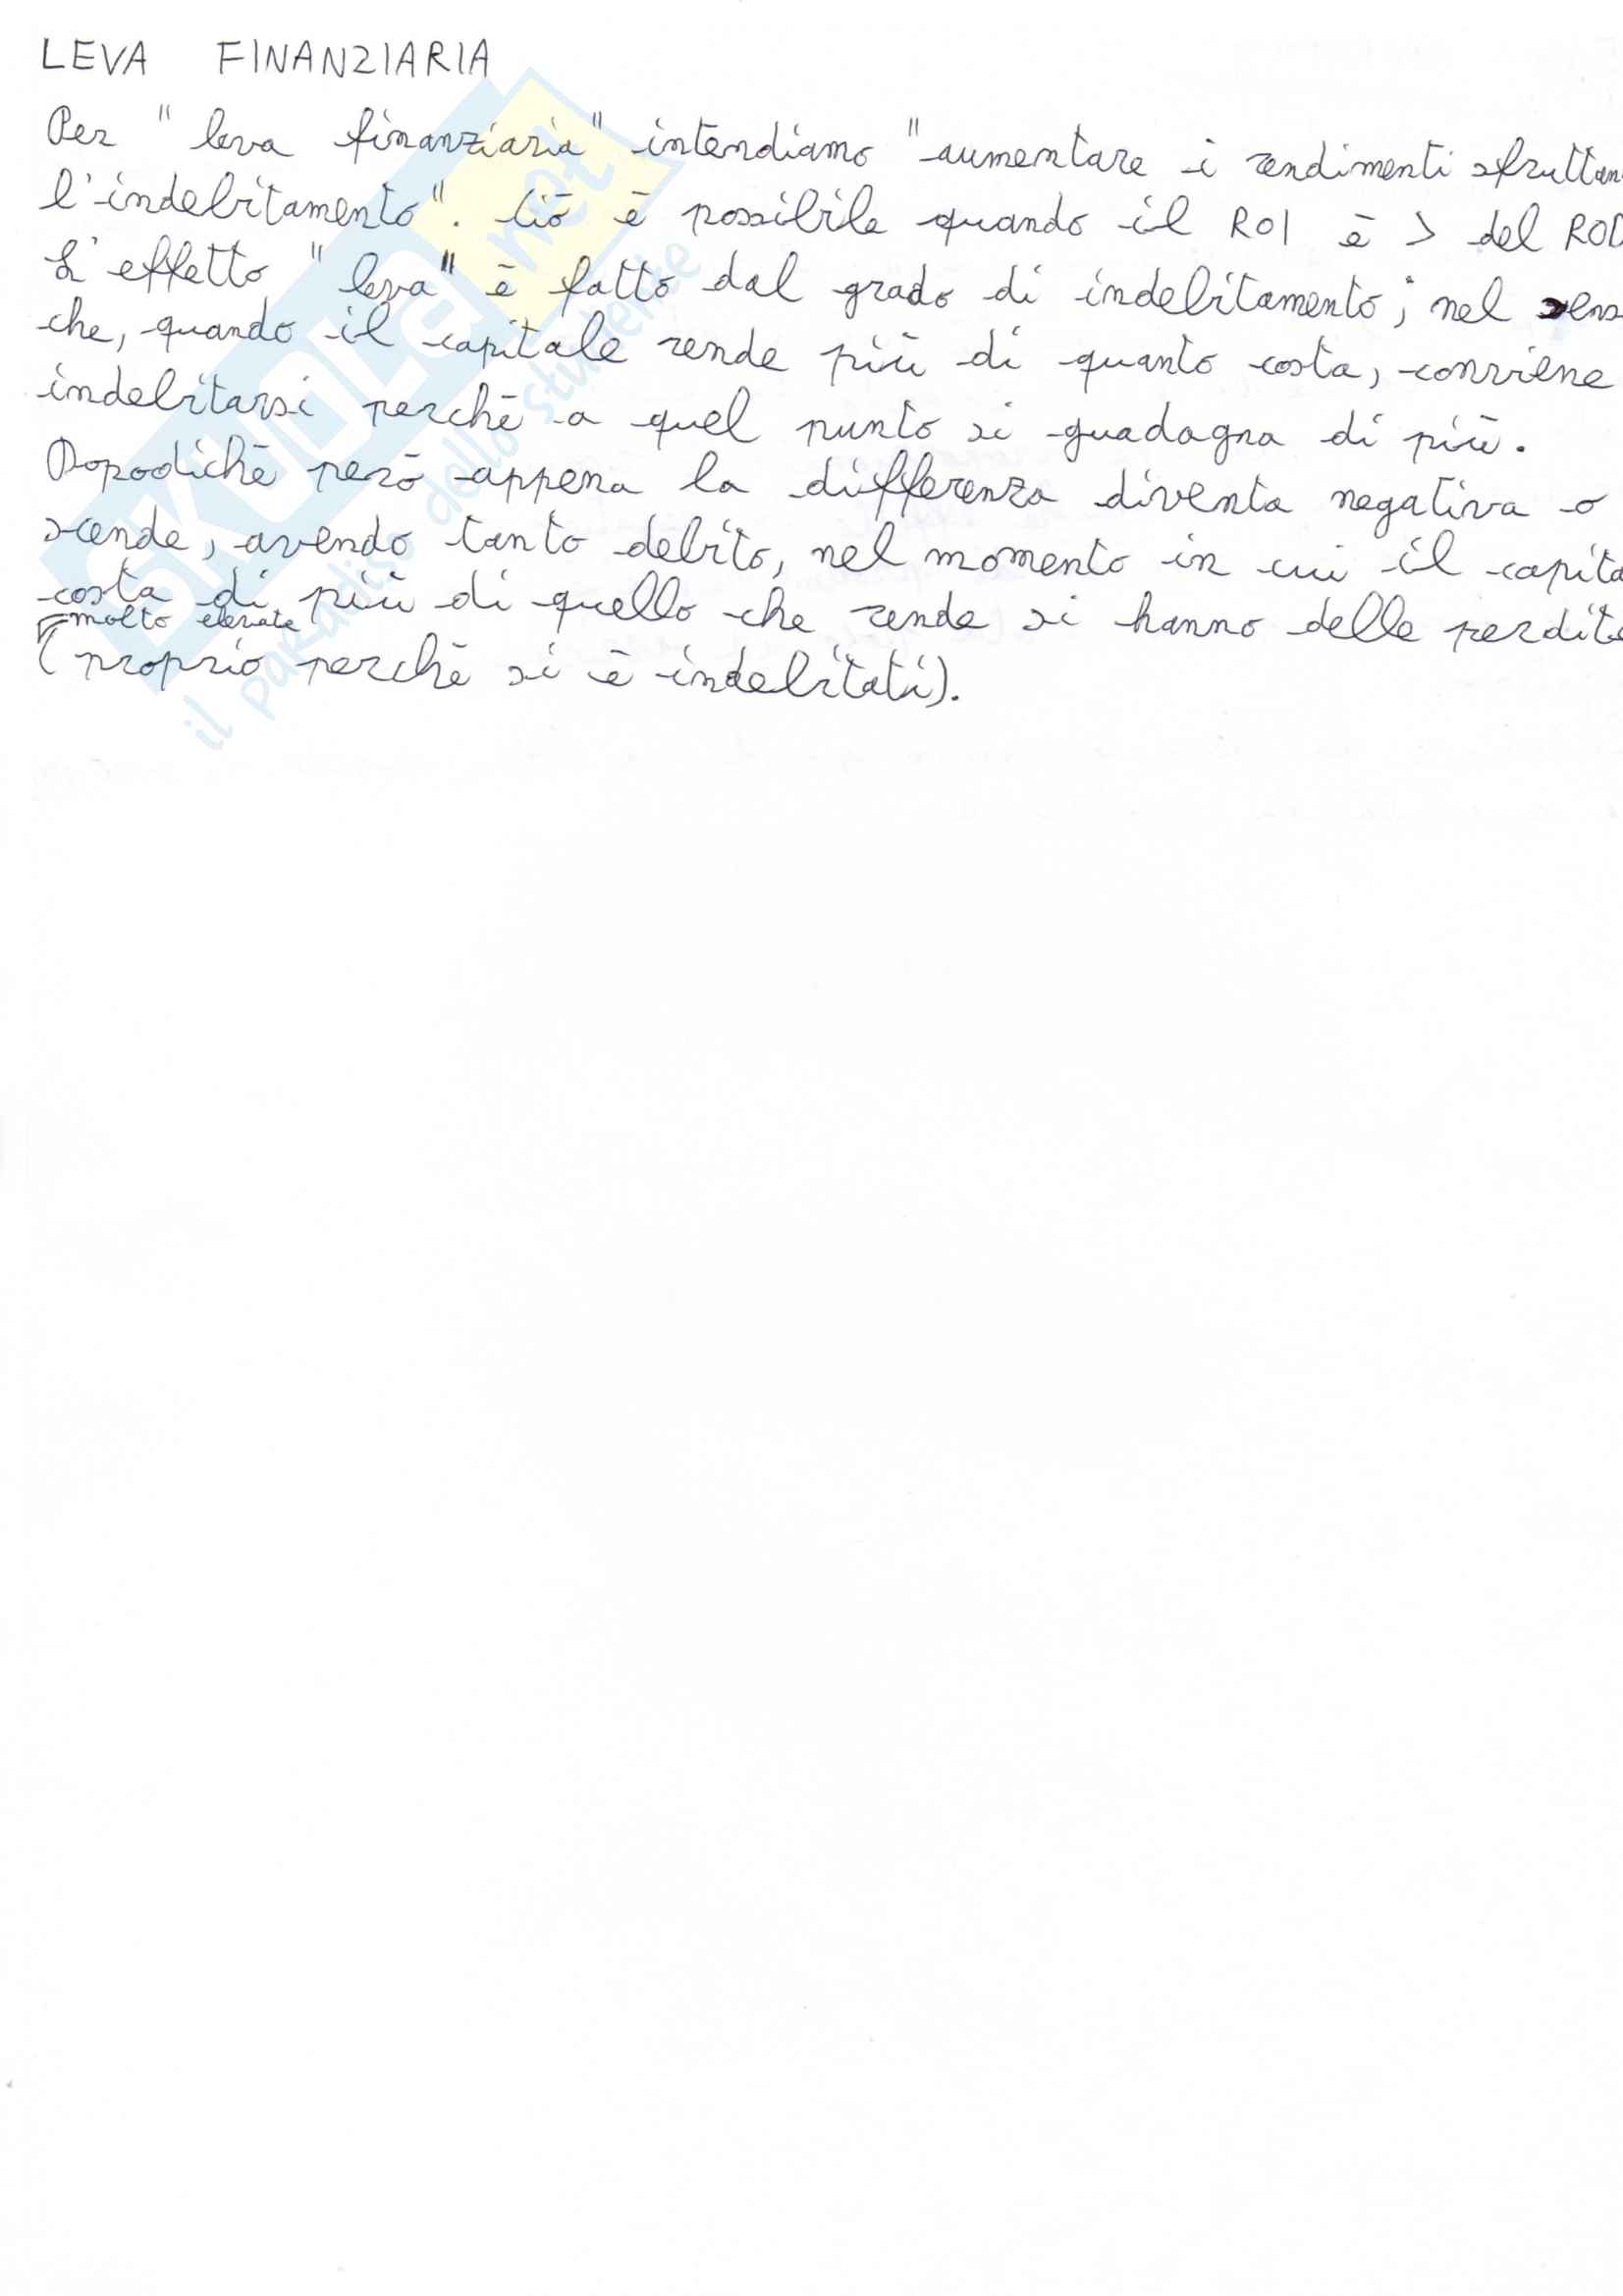 LEVA FINANZIARIA
Per "leva finanziaria" intendiamo "aumentare i rendimenti sfruttan
l'indebitamento". Ciò è possibile quando il ROI è > del ROD
L'effetto "leva" è fatto dal grado di indebitamento; nel sens
che, quando il capitale rende più di quanto costa, conviene
indebitarsi perchè a quel punto si guadagna di più.
Dopodichè però appena la differenza diventa negativa o
scende, avendo tanto debito, nel momento in cui il capita
costa di più di quello che rende si hanno delle perdite
molto elevate
(proprio perchè si è indebitati).
SKUOLA.net
il paradiso dello studente